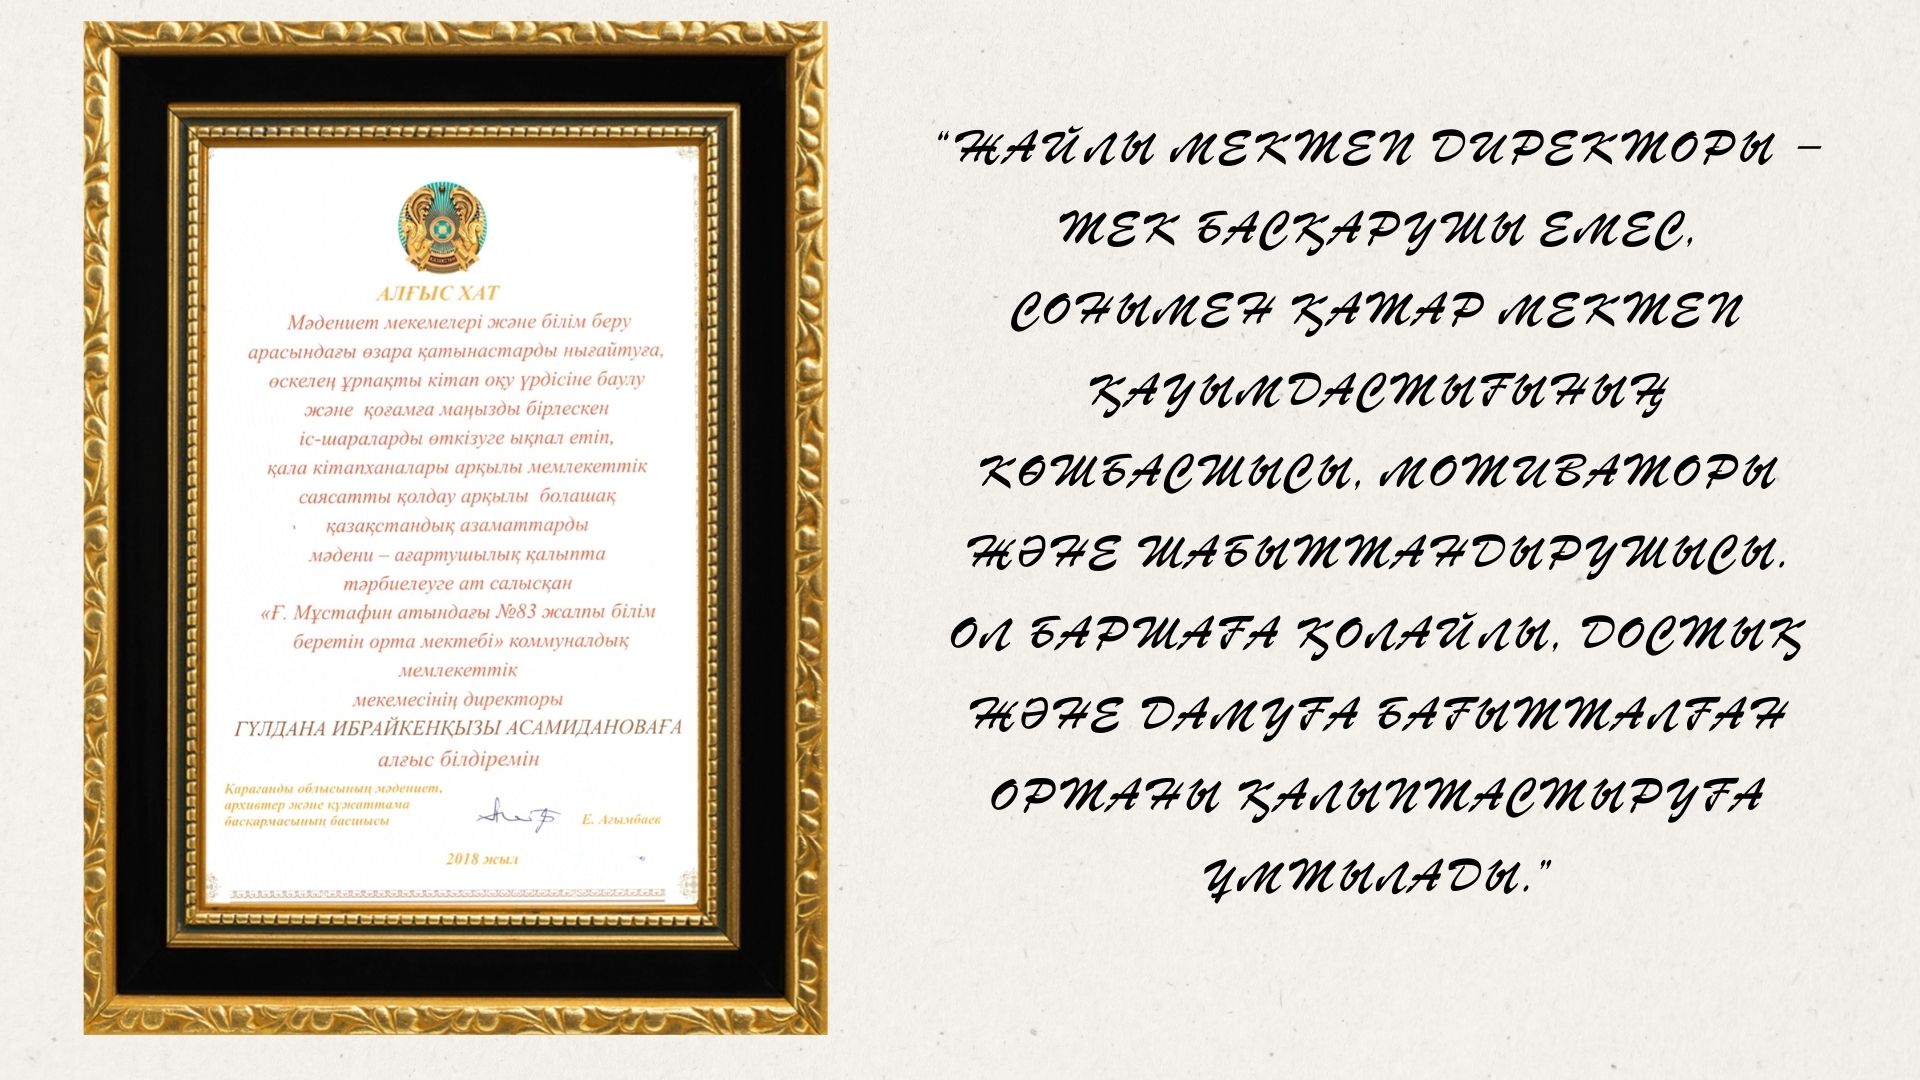 АЛҒЫС ХАТ
Мәдениет мекемелері және білім беру
арасындағы өзара қатынастарды нығайтуға,
өскелең ұрпақты кітап оқу үрдісіне баулу
және қоғамға маңызды бірлескен
іс-шараларды өткізуге ықпал етіп,
қала кітапханалары арқылы мемлекеттік
саясатты қолдау арқылы болашақ
қазақстандық азаматтарды
мәдени – ағартушылық қалыпта
тәрбиелеуге ат салысқан
«Ғ. Мұстафин атындағы №83 жалпы білім
беретін орта мектебі» коммуналдық
мемлекеттік
мекемесінің директоры
ГҮЛДАНА ИБРАЙКЕНҚЫЗЫ АСАМИДАНОВАҒА
алғыс білдіремін
Қарағанды облысының мәдениет,
архивтер және құжаттама
басқармасының басшысы
Е. Ағымбаев
2018 жыл
“ЖАЙЛЫ МЕКТЕП ДИРЕКТОРЫ –
ТЕК БАСҚАРУШЫ ЕМЕС,
СОНЫМЕН ҚАТАР МЕКТЕП
ҚАУЫМДАСТЫҒЫНЫҢ
КӨШБАСШЫСЫ, МОТИВАТОРЫ
ЖӘНЕ ШАБЫТТАНДЫРУШЫСЫ.
ОЛ БАРШАҒА ҚОЛАЙЛЫ, ДОСТЫҚ
ЖӘНЕ ДАМУҒА БАҒЫТТАЛҒАН
ОРТАНЫ ҚАЛЫПТАСТЫРУҒА
ҰМТЫЛАДЫ.”